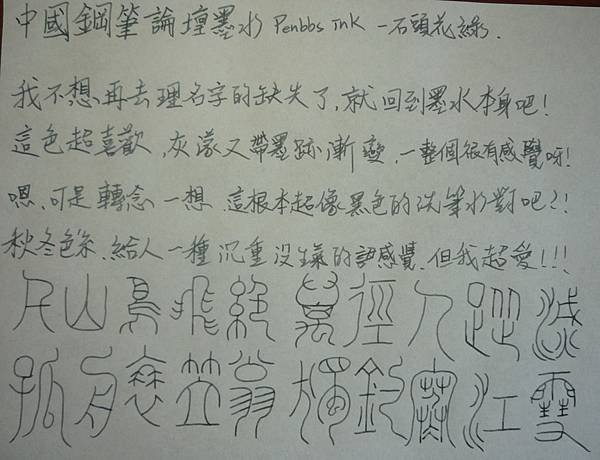 中國鋼筆論壇墨水 Penbbs ink 一石頭花綠.
我不想再去理名字的缺失了,就回到墨水本身吧!
這色超喜歡,灰濛又帶墨跡漸變,一整個很有感覺呀!
嗯,可是轉念一想,這根本超像黑色的洗筆水對吧?!
秋冬色系,給人一種沉重沒生氣的感覺,但我超愛!!!
千山鳥飛絕 萬徑人蹤滅
孤舟蓑笠翁 獨釣寒江雪